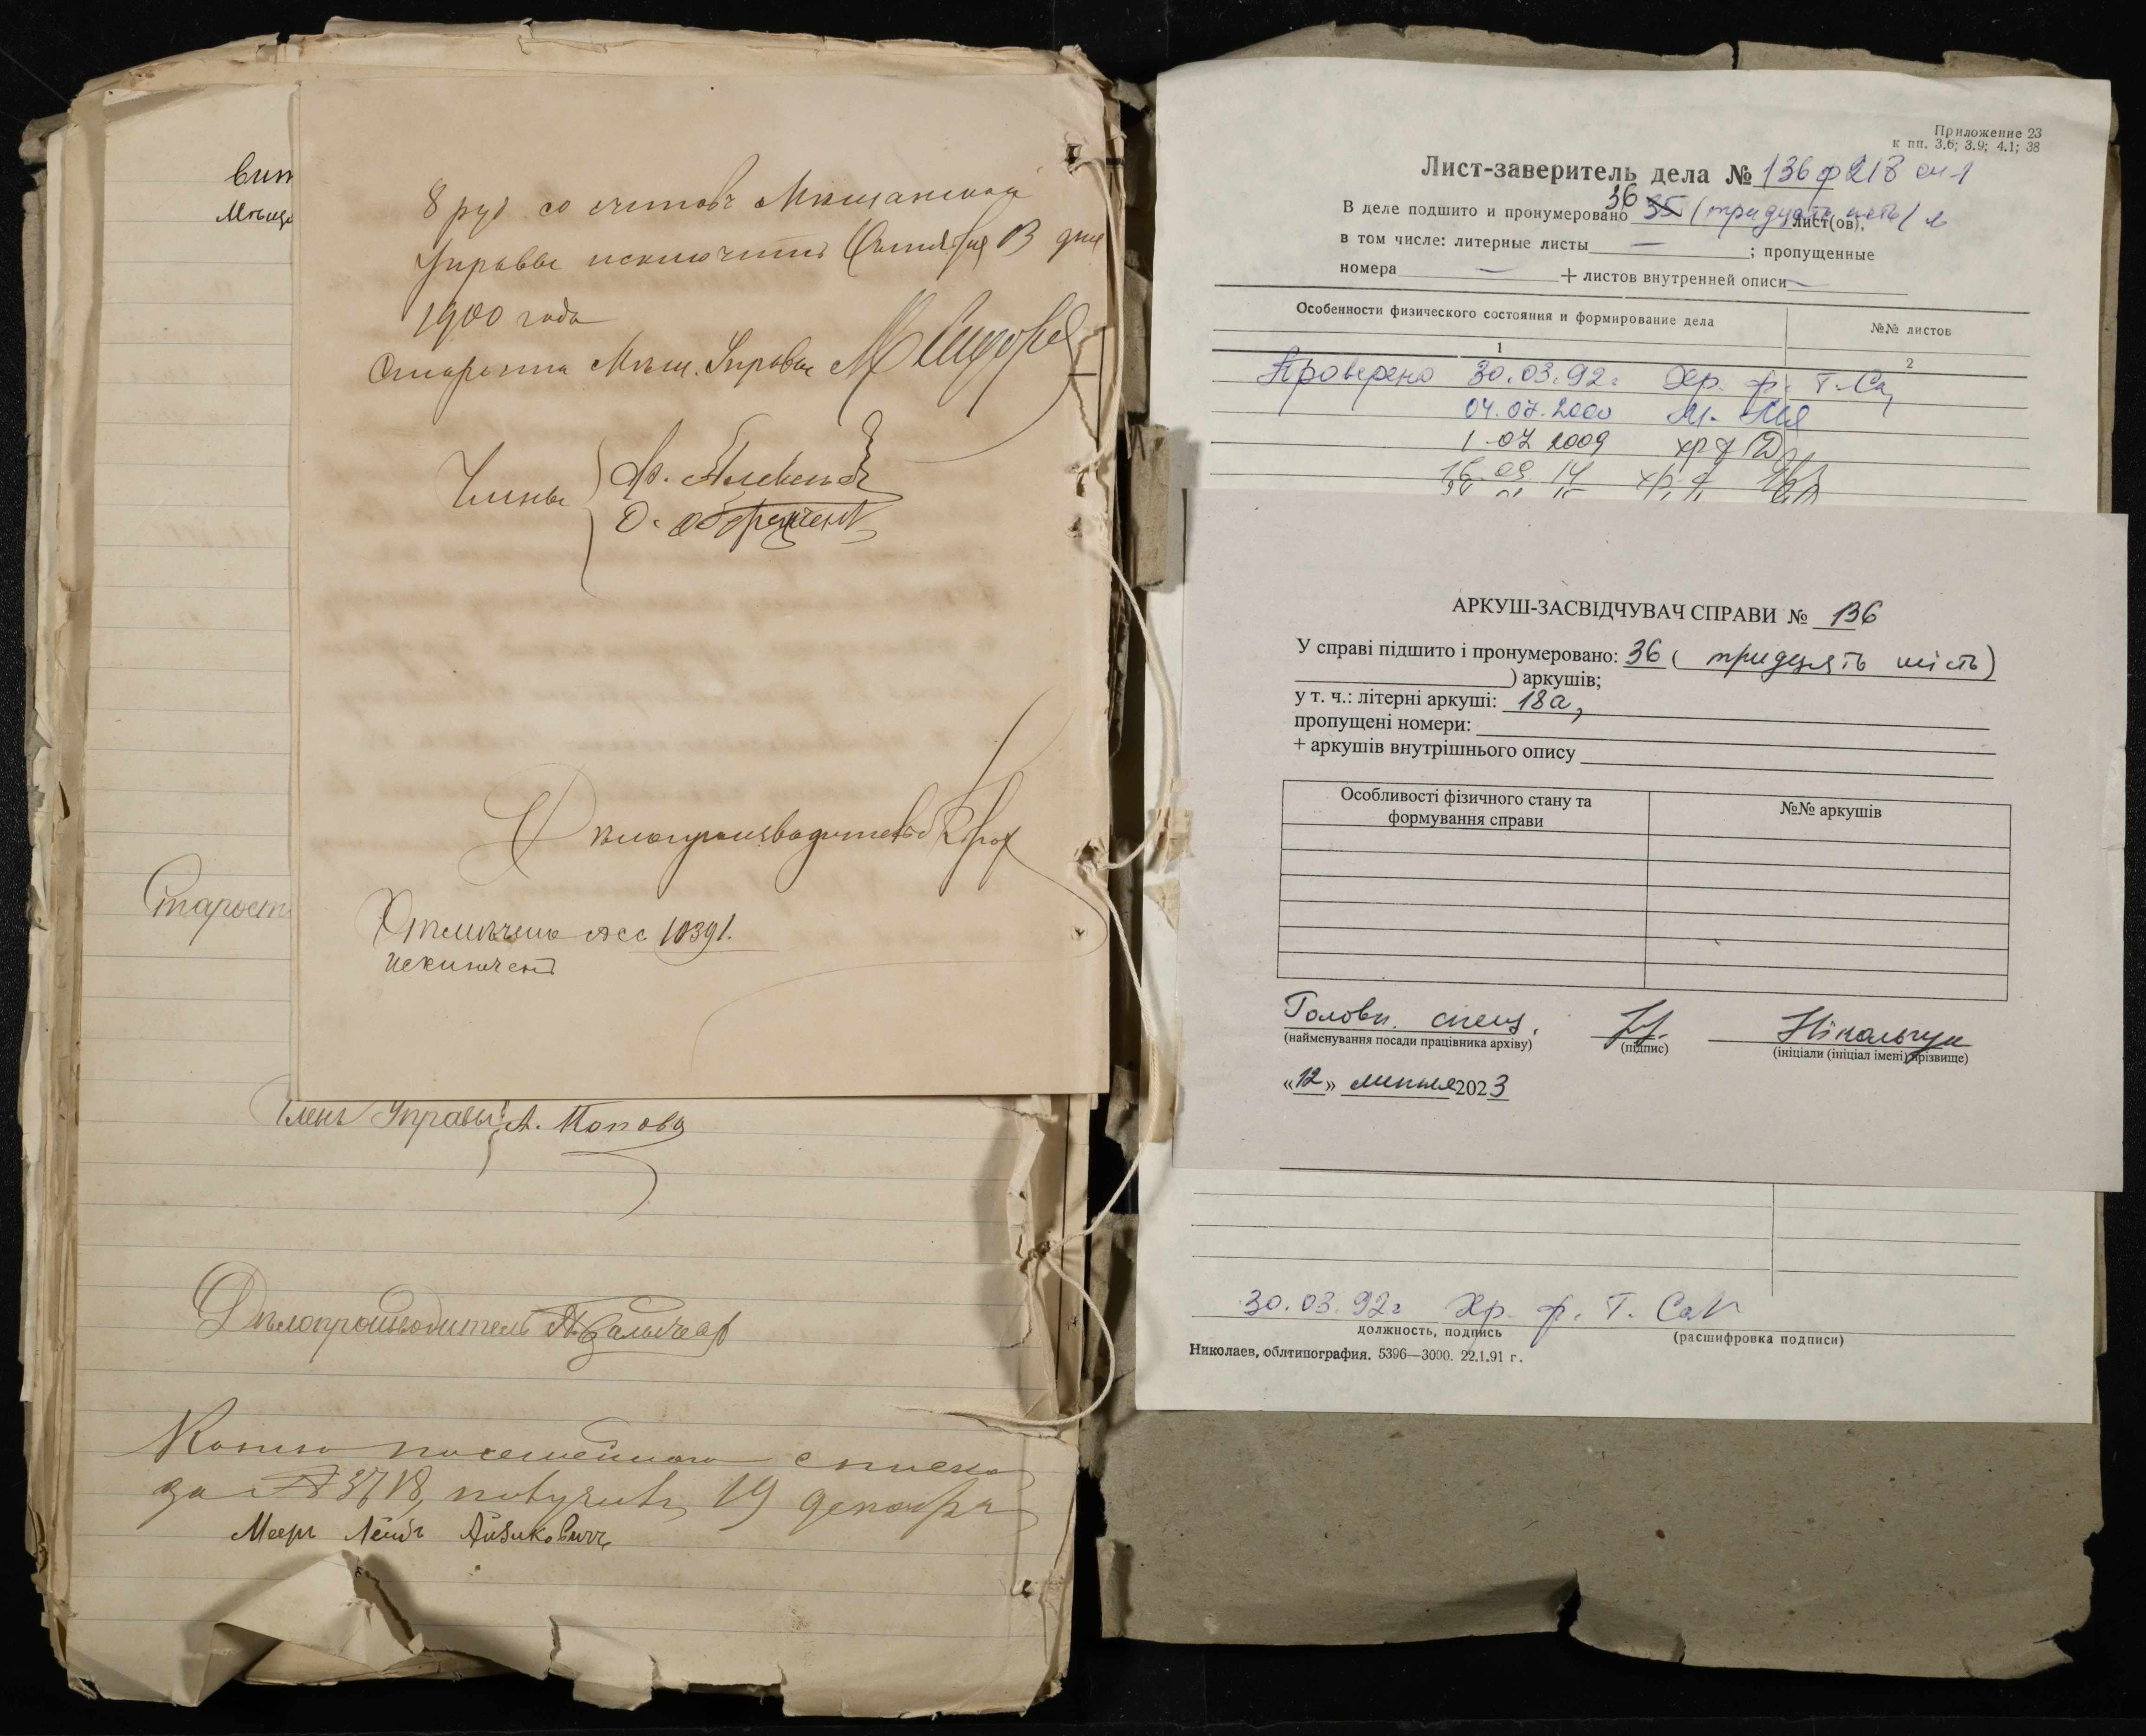 8 руб. со счетовъ Мѣщанской
Управы исключить Октября 13 дня
1900 года
Староста Мѣщ. Управы
Члены
О.
Дѣлопроизводитель
Отмѣчено 10391.
исключенъ
вип
Мѣща
Старост
Членъ Управы: А. Попова
Дѣлопроизводитель
Копию посемейного списка
за № 3718, получивъ 19 декабря
Мееръ Лейбъ Айзиковичъ
Приложение 23
к пп. 3.6; 3.9; 4.1; 38
Лист-заверитель дела № 136 ф 218 оп 1
36
В деле подшито и пронумеровано 35 (тридцать шесть) л
лист(ов),
в том числе: литерные листы — ; пропущенные
номера — + листов внутренней описи —
Особенности физического состояния и формирование дела
№№ листов
1
2
Проверено 30.03.92г. Хр. ф. Т.
04.07.2000
1.07 2009 хр ф
16.09 14 хр. ф.
АРКУШ-ЗАСВІДЧУВАЧ СПРАВИ № 136
У справі підшито і пронумеровано: 36 ( тридцять шість)
) аркушів;
у т. ч.: літерні аркуші: 18а,
пропущені номери:
+ аркушів внутрішнього опису
Особливості фізичного стану та
формування справи
№№ аркушів
Головн. спец. Нікольчук
(найменування посади працівника архіву) (підпис) (ініціали (ініціал імені), прізвище)
«12» липня 2023
30.03.92г Хр. ф. Т.
должность, подпись
(расшифровка подписи)
Николаев, облтипография. 5396—3000. 22.1.91 г.